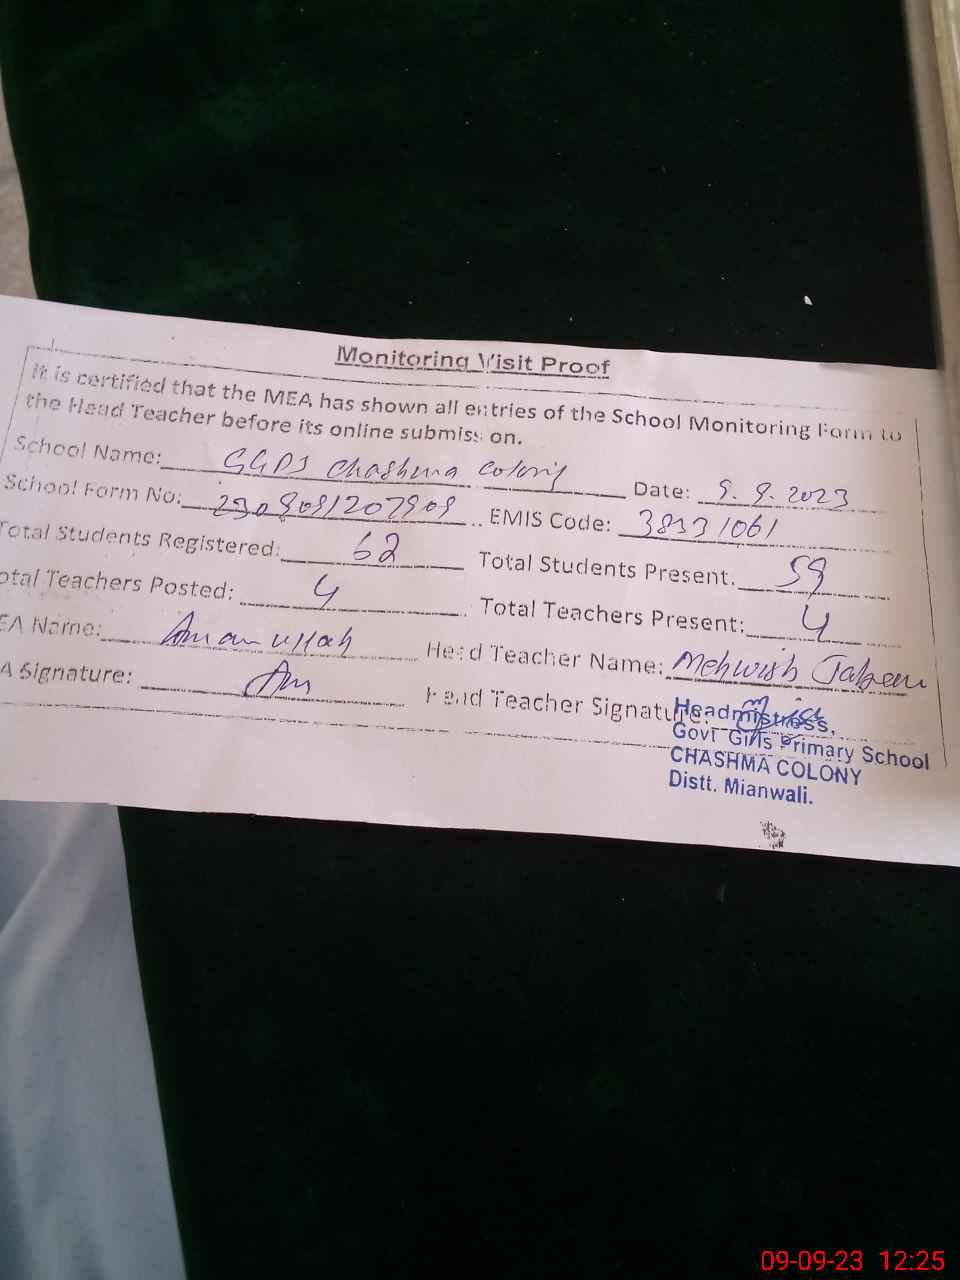 Monitoring Visit Proof
It is certified that the MEA has shown all entries of the School Monitoring Form to
the Head Teacher before its online submission.
School Name: GGPS Chashma Colony Date: 9.9.2023
School Form No: EMIS Code: 38331061
Total Students Registered: 62 Total Students Present: 59
otal Teachers Posted: 4 Total Teachers Present: 4
EA Name: Aman ullah Head Teacher Name: Mehwish Jabeen
A Signature: Head Teacher Signature:
Headmistress,
Govt Girls Primary School
CHASHMA COLONY
Distt. Mianwali.
09-09-23 12:25